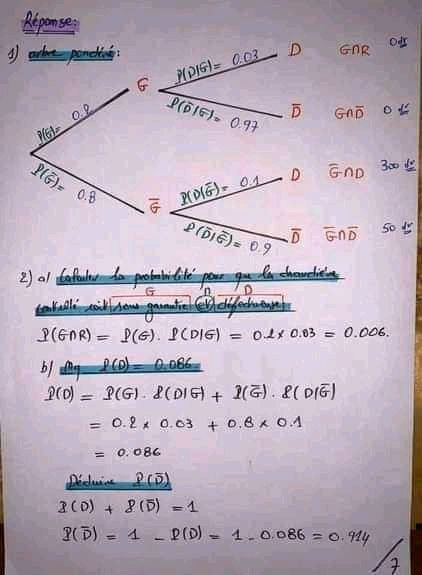 Réponse:
1) arbre pondéré:
P(G)= 0.2
G
P(D|G)= 0.03
D
G∩R
0 dt
P(D̄|G)= 0.97
D̄
G∩D̄
0 dt
P(Ḡ)= 0.8
Ḡ
P(D|Ḡ)= 0.1
D
Ḡ∩D
300 dt
P(D̄|Ḡ)= 0.9
D̄
Ḡ∩D̄
50 dt
2) a) Calculer la probabilité pour que la chaudière
G ∩ D
contrôlé soit sous garantie et défectueuse:
P(G∩R) = P(G). P(D|G) = 0.2 x 0.03 = 0.006.
b) Mq P(D) = 0.086.
P(D) = P(G). P(D|G) + P(Ḡ). P(D|Ḡ)
= 0.2 x 0.03 + 0.8 x 0.1
= 0.086
Déduire P(D̄)
P(D) + P(D̄) = 1
P(D̄) = 1 - P(D) = 1 - 0.086 = 0.914
/7